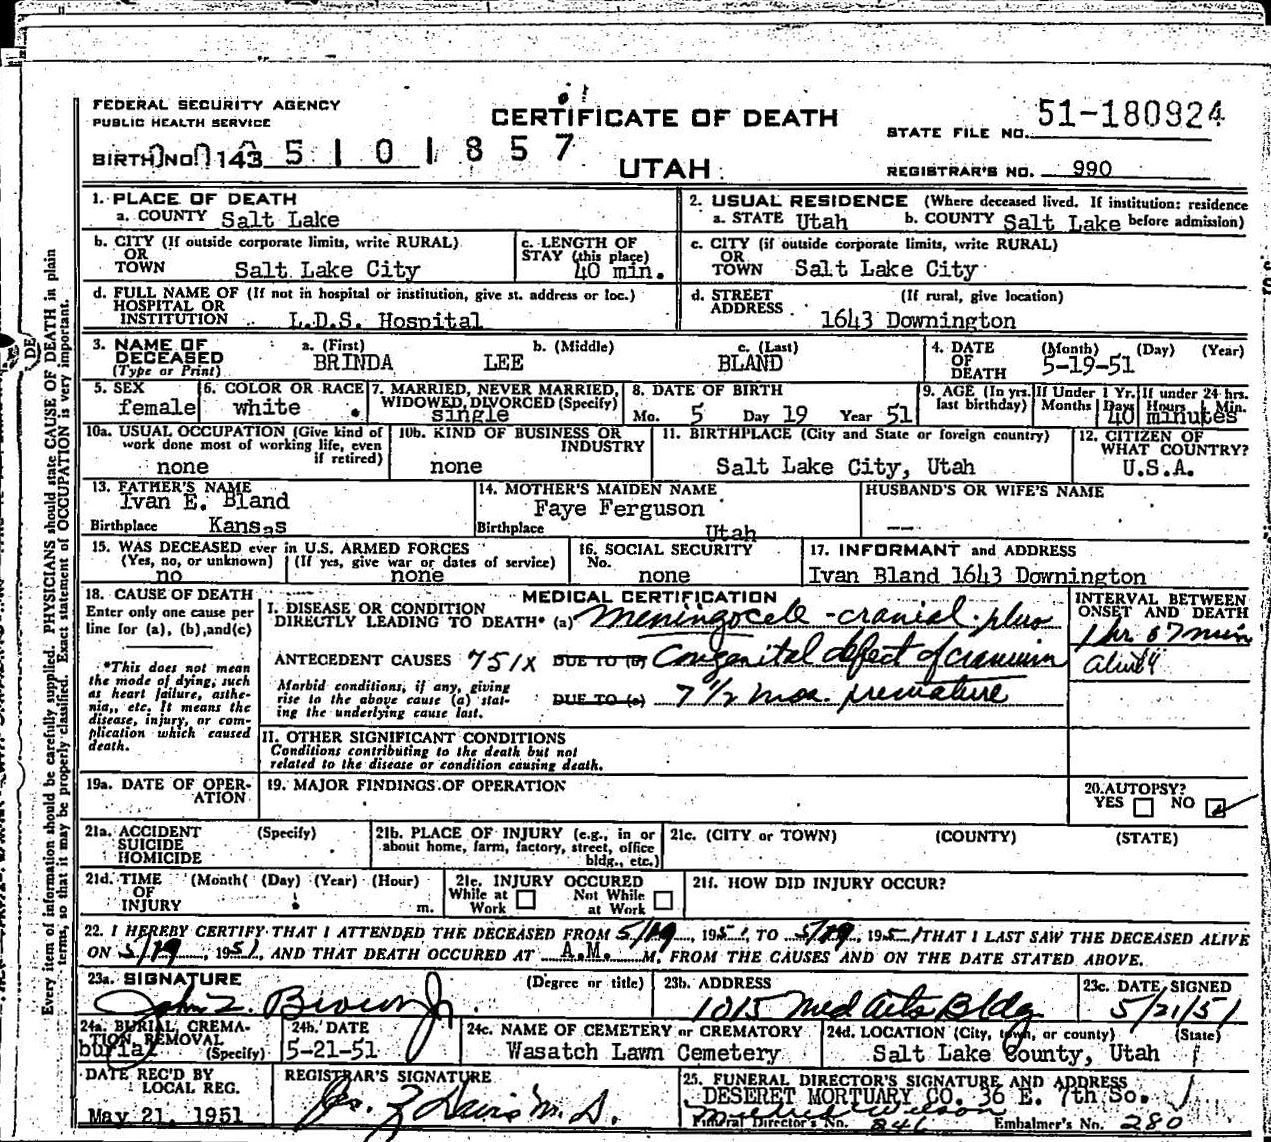 FEDERAL SECURITY AGENCY
PUBLIC HEALTH SERVICE
CERTIFICATE OF DEATH
UTAH
STATE FILE NO. 51-180924
BIRTH NO. 143 5 1 0 1 8 5 7
REGISTRAR'S NO. 990
Every item of information should be carefully supplied. PHYSICIANS should state CAUSE OF DEATH in plain
terms, so that it may be properly classified. Exact statement of OCCUPATION is very important.
1. PLACE OF DEATH
a. COUNTY Salt Lake
2. USUAL RESIDENCE (Where deceased lived. If institution: residence
a. STATE Utah b. COUNTY Salt Lake before admission)
b. CITY (If outside corporate limits, write RURAL)
OR
TOWN Salt Lake City
c. LENGTH OF
STAY (this place)
40 min.
c. CITY (if outside corporate limits, write RURAL)
OR
TOWN Salt Lake City
d. FULL NAME OF (If not in hospital or institution, give st. address or loc.)
HOSPITAL OR
INSTITUTION L.D.S. Hospital
d. STREET (If rural, give location)
ADDRESS
1643 Downington
3. NAME OF
DECEASED
(Type or Print)
a. (First) b. (Middle) c. (Last)
BRINDA LEE BLAND
4. DATE
OF
DEATH
(Month) (Day) (Year)
5-19-51
5. SEX
female
6. COLOR OR RACE
white
7. MARRIED, NEVER MARRIED,
WIDOWED, DIVORCED (Specify)
single
8. DATE OF BIRTH
Mo. 5 Day 19 Year 51
9. AGE (In yrs.
last birthday)
If Under 1 Yr.
Months Days
If under 24 hrs.
Hours Min.
40 minutes
10a. USUAL OCCUPATION (Give kind of
work done most of working life, even
if retired)
none
10b. KIND OF BUSINESS OR
INDUSTRY
none
11. BIRTHPLACE (City and State or foreign country)
Salt Lake City, Utah
12. CITIZEN OF
WHAT COUNTRY?
U.S.A.
13. FATHER'S NAME
Ivan E. Bland
Birthplace Kansas
14. MOTHER'S MAIDEN NAME
Faye Ferguson
Birthplace Utah
HUSBAND'S OR WIFE'S NAME
--
15. WAS DECEASED ever in U.S. ARMED FORCES
(Yes, no, or unknown) (If yes, give war or dates of service)
no none
16. SOCIAL SECURITY
No.
none
17. INFORMANT and ADDRESS
Ivan Bland 1643 Downington
18. CAUSE OF DEATH
Enter only one cause per
line for (a), (b), and (c)
*This does not mean
the mode of dying, such
as heart failure, asthe-
nia,, etc. It means the
disease, injury, or com-
plication which caused
death.
MEDICAL CERTIFICATION
I. DISEASE OR CONDITION
DIRECTLY LEADING TO DEATH* (a) Meningocele - cranial - plus
ANTECEDENT CAUSES 751X DUE TO (b) Congenital defect of cranium
Morbid conditions, if any, giving
rise to the above cause (a) stat-
ing the underlying cause last.
DUE TO (c) 7 1/2 mos. premature
II. OTHER SIGNIFICANT CONDITIONS
Conditions contributing to the death but not
related to the disease or condition causing death.
INTERVAL BETWEEN
ONSET AND DEATH
1 hr 07 min
19a. DATE OF OPER-
ATION
19. MAJOR FINDINGS OF OPERATION
20. AUTOPSY?
YES NO
21a. ACCIDENT (Specify)
SUICIDE
HOMICIDE
21b. PLACE OF INJURY (e.g., in or
about home, farm, factory, street, office
bldg., etc.)
21c. (CITY or TOWN) (COUNTY) (STATE)
21d. TIME (Month( (Day) (Year) (Hour)
OF
INJURY m.
21e. INJURY OCCURED
While at Work Not While at Work
21f. HOW DID INJURY OCCUR?
22. I HEREBY CERTIFY THAT I ATTENDED THE DECEASED FROM 5/19, 1951, TO 5/19, 1951 THAT I LAST SAW THE DECEASED ALIVE
ON 5/19, 1951, AND THAT DEATH OCCURED AT A.M. M. FROM THE CAUSES AND ON THE DATE STATED ABOVE.
23a. SIGNATURE (Degree or title)
John Z. Brown Jr.
23b. ADDRESS
1015 Med Arts Bldg
23c. DATE SIGNED
5/21/51
24a. BURIAL, CREMA-
TION, REMOVAL
(Specify)
burial
24b. DATE
5-21-51
24c. NAME OF CEMETERY or CREMATORY
Wasatch Lawn Cemetery
24d. LOCATION (City, town, or county) (State)
Salt Lake County, Utah
DATE REC'D BY
LOCAL REG.
May 21, 1951
REGISTRAR'S SIGNATURE
Jas. Z Davis M.D.
25. FUNERAL DIRECTOR'S SIGNATURE AND ADDRESS
DESERET MORTUARY CO. 36 E. 7th So.
Mildred Wilson
Funeral Director's No. 846 Embalmer's No. 280